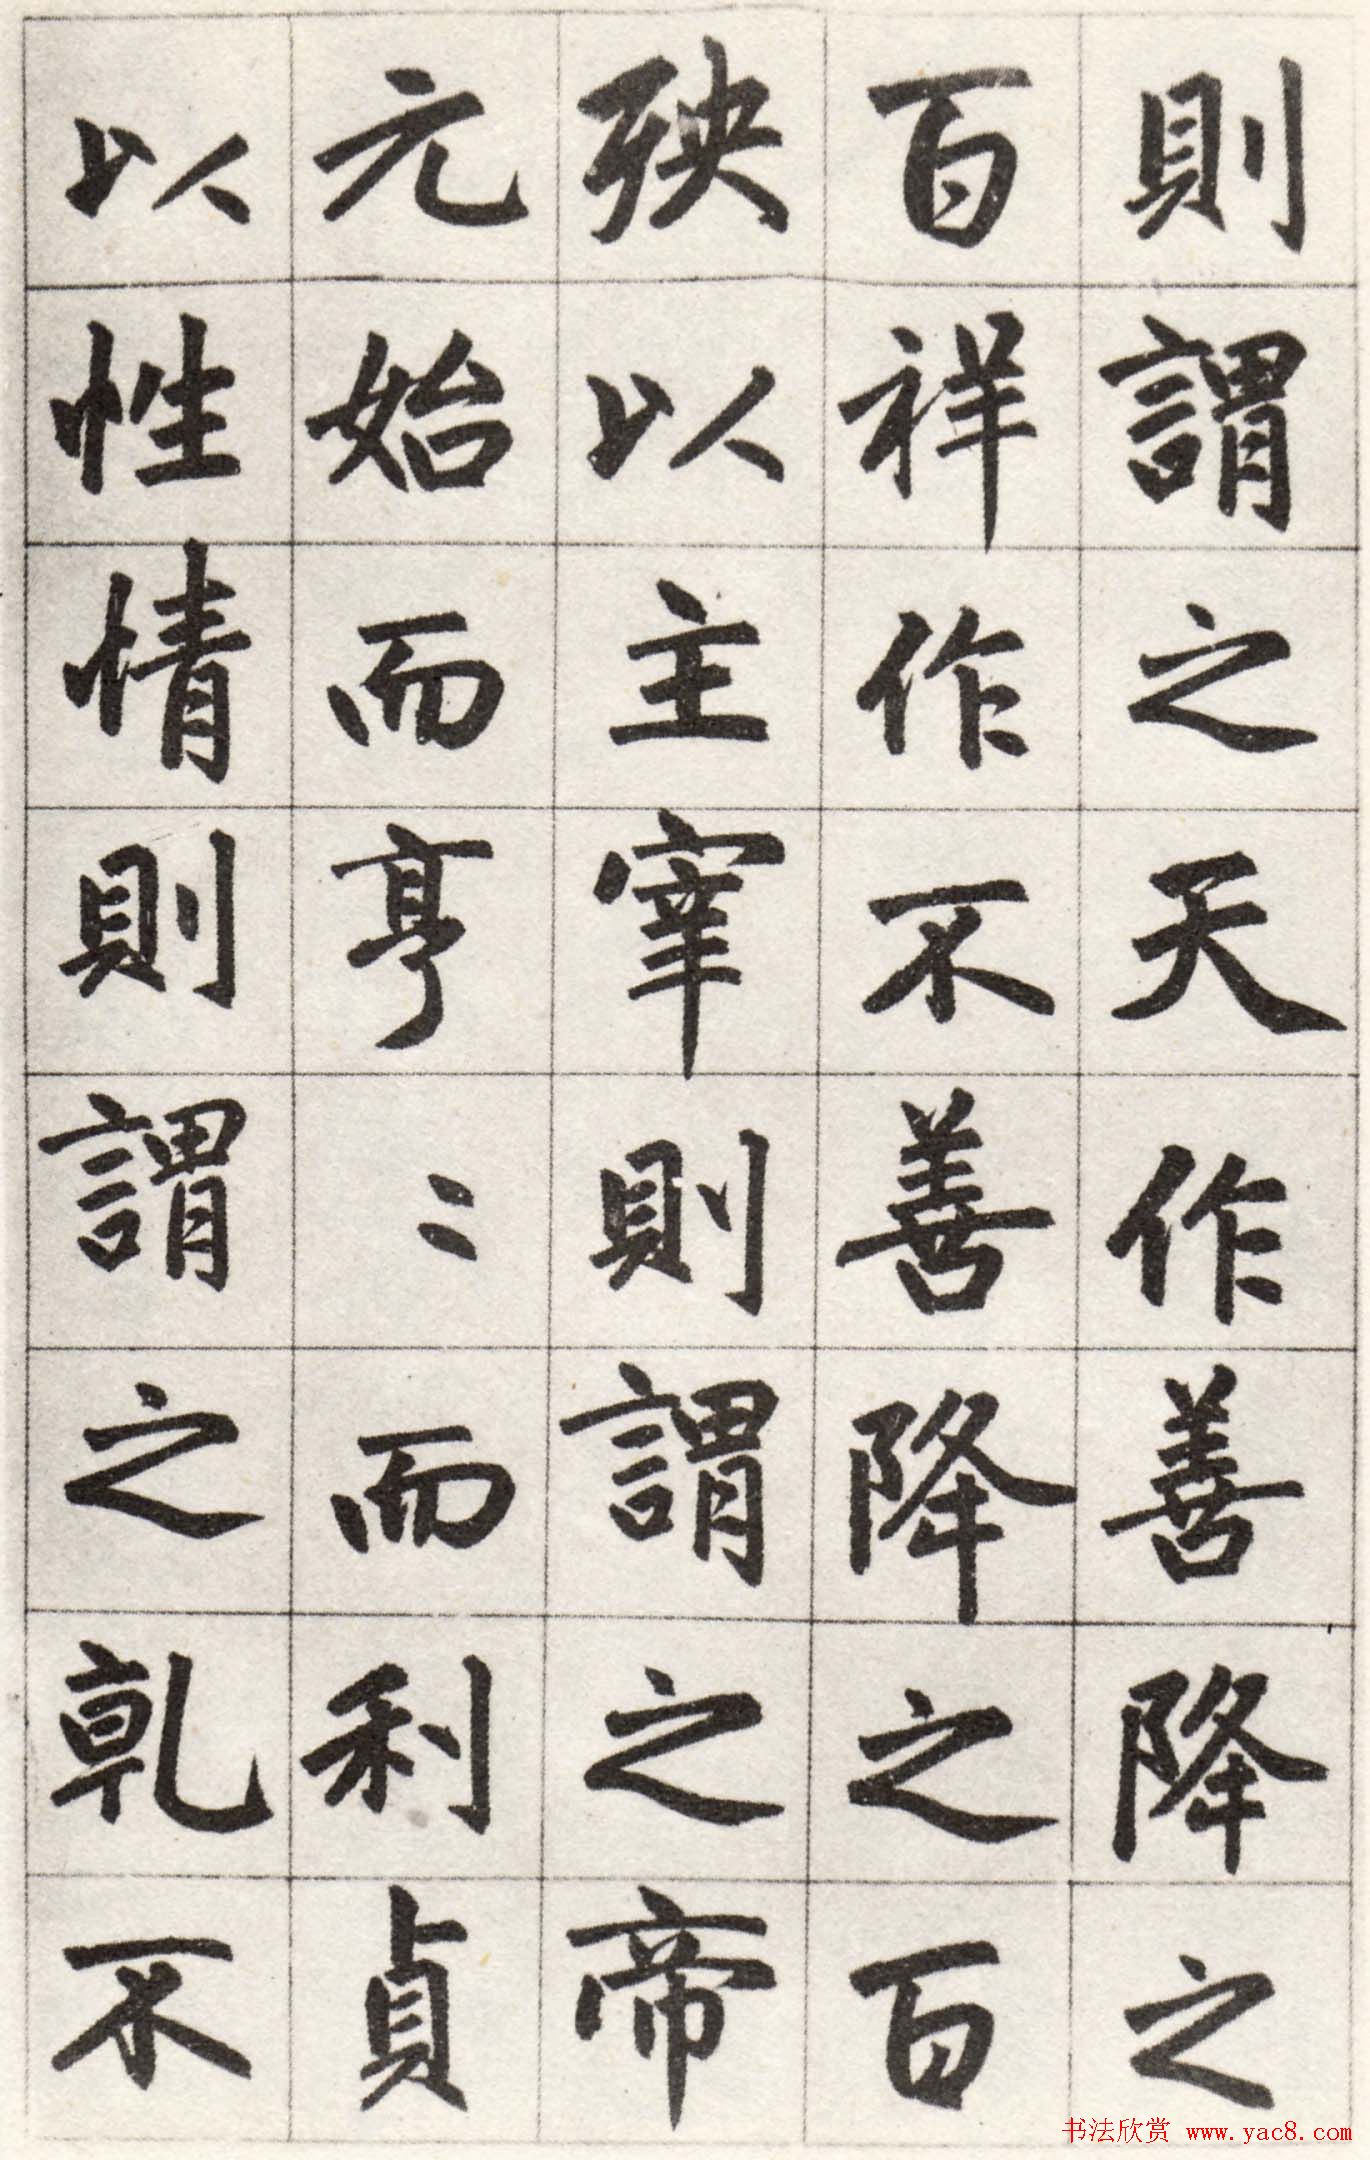 則謂之天作善降之
百祥作不善降之百
殃以主宰則謂之帝
元始而亨〻而利貞
以性情則謂之乹不
书法欣赏 www.yac8.com